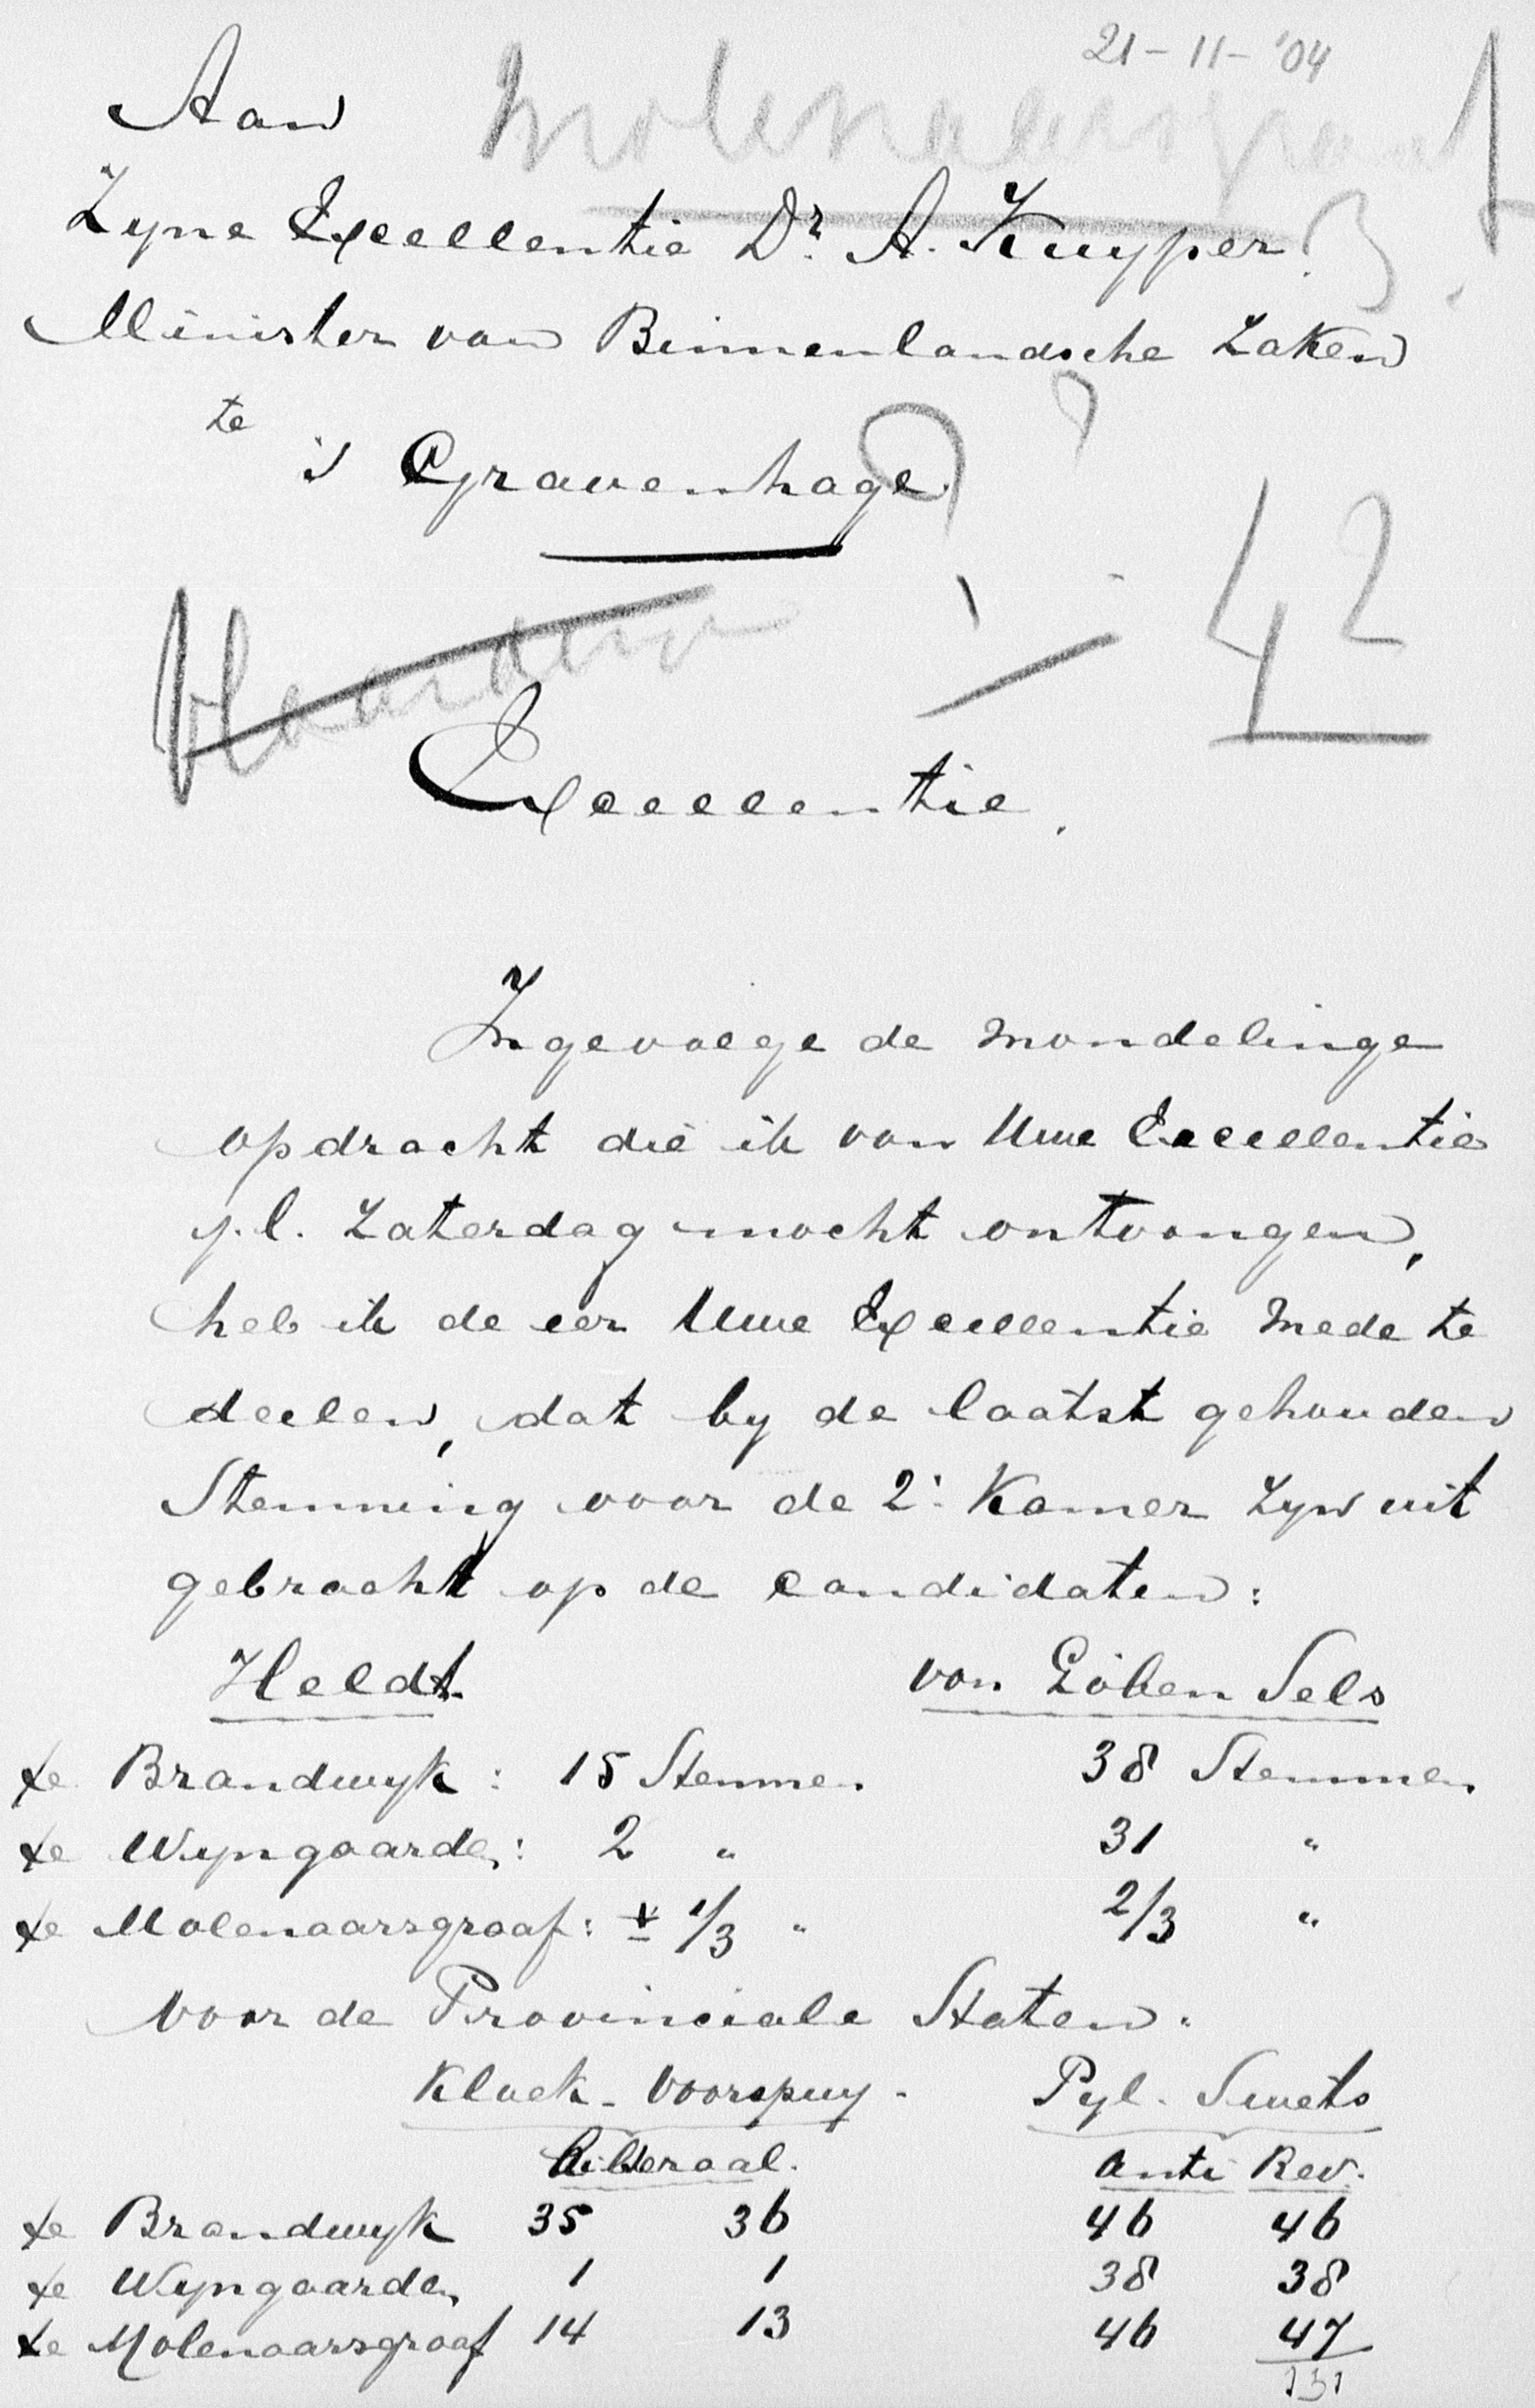 21-11-'04
Molenaarsgraaf
Aan
Zyne Excellentie Dr. A. Kuyper
Minister van Binnenlandsche Zaken
te
's Gravenhage.
42
Excellentie.
Ingevolge de mondelinge
opdracht die ik van Uwe Excellentie
j.l. Zaterdag mocht ontvangen,
heb ik de eer Uwe Excellentie mede te
deelen, dat by de laatst gehouden
Stemming voor de 2e Kamer zyn uit
gebracht op de candidaten:
Heldt. van Löben Sels
te Brandwyk: 15 Stemmen 38 Stemmen
te Wyngaarden: 2 " 31 "
te Molenaarsgraaf: ± 1/3 " 2/3 "
Voor de Provinciale Staten.
Kluek - Voorspuy. Pyl. Smets
Liberaal. Anti Rev.
te Brandwyk 35 36 46 46
te Wyngaarden 1 1 38 38
te Molenaarsgraaf 14 13 46 47
131